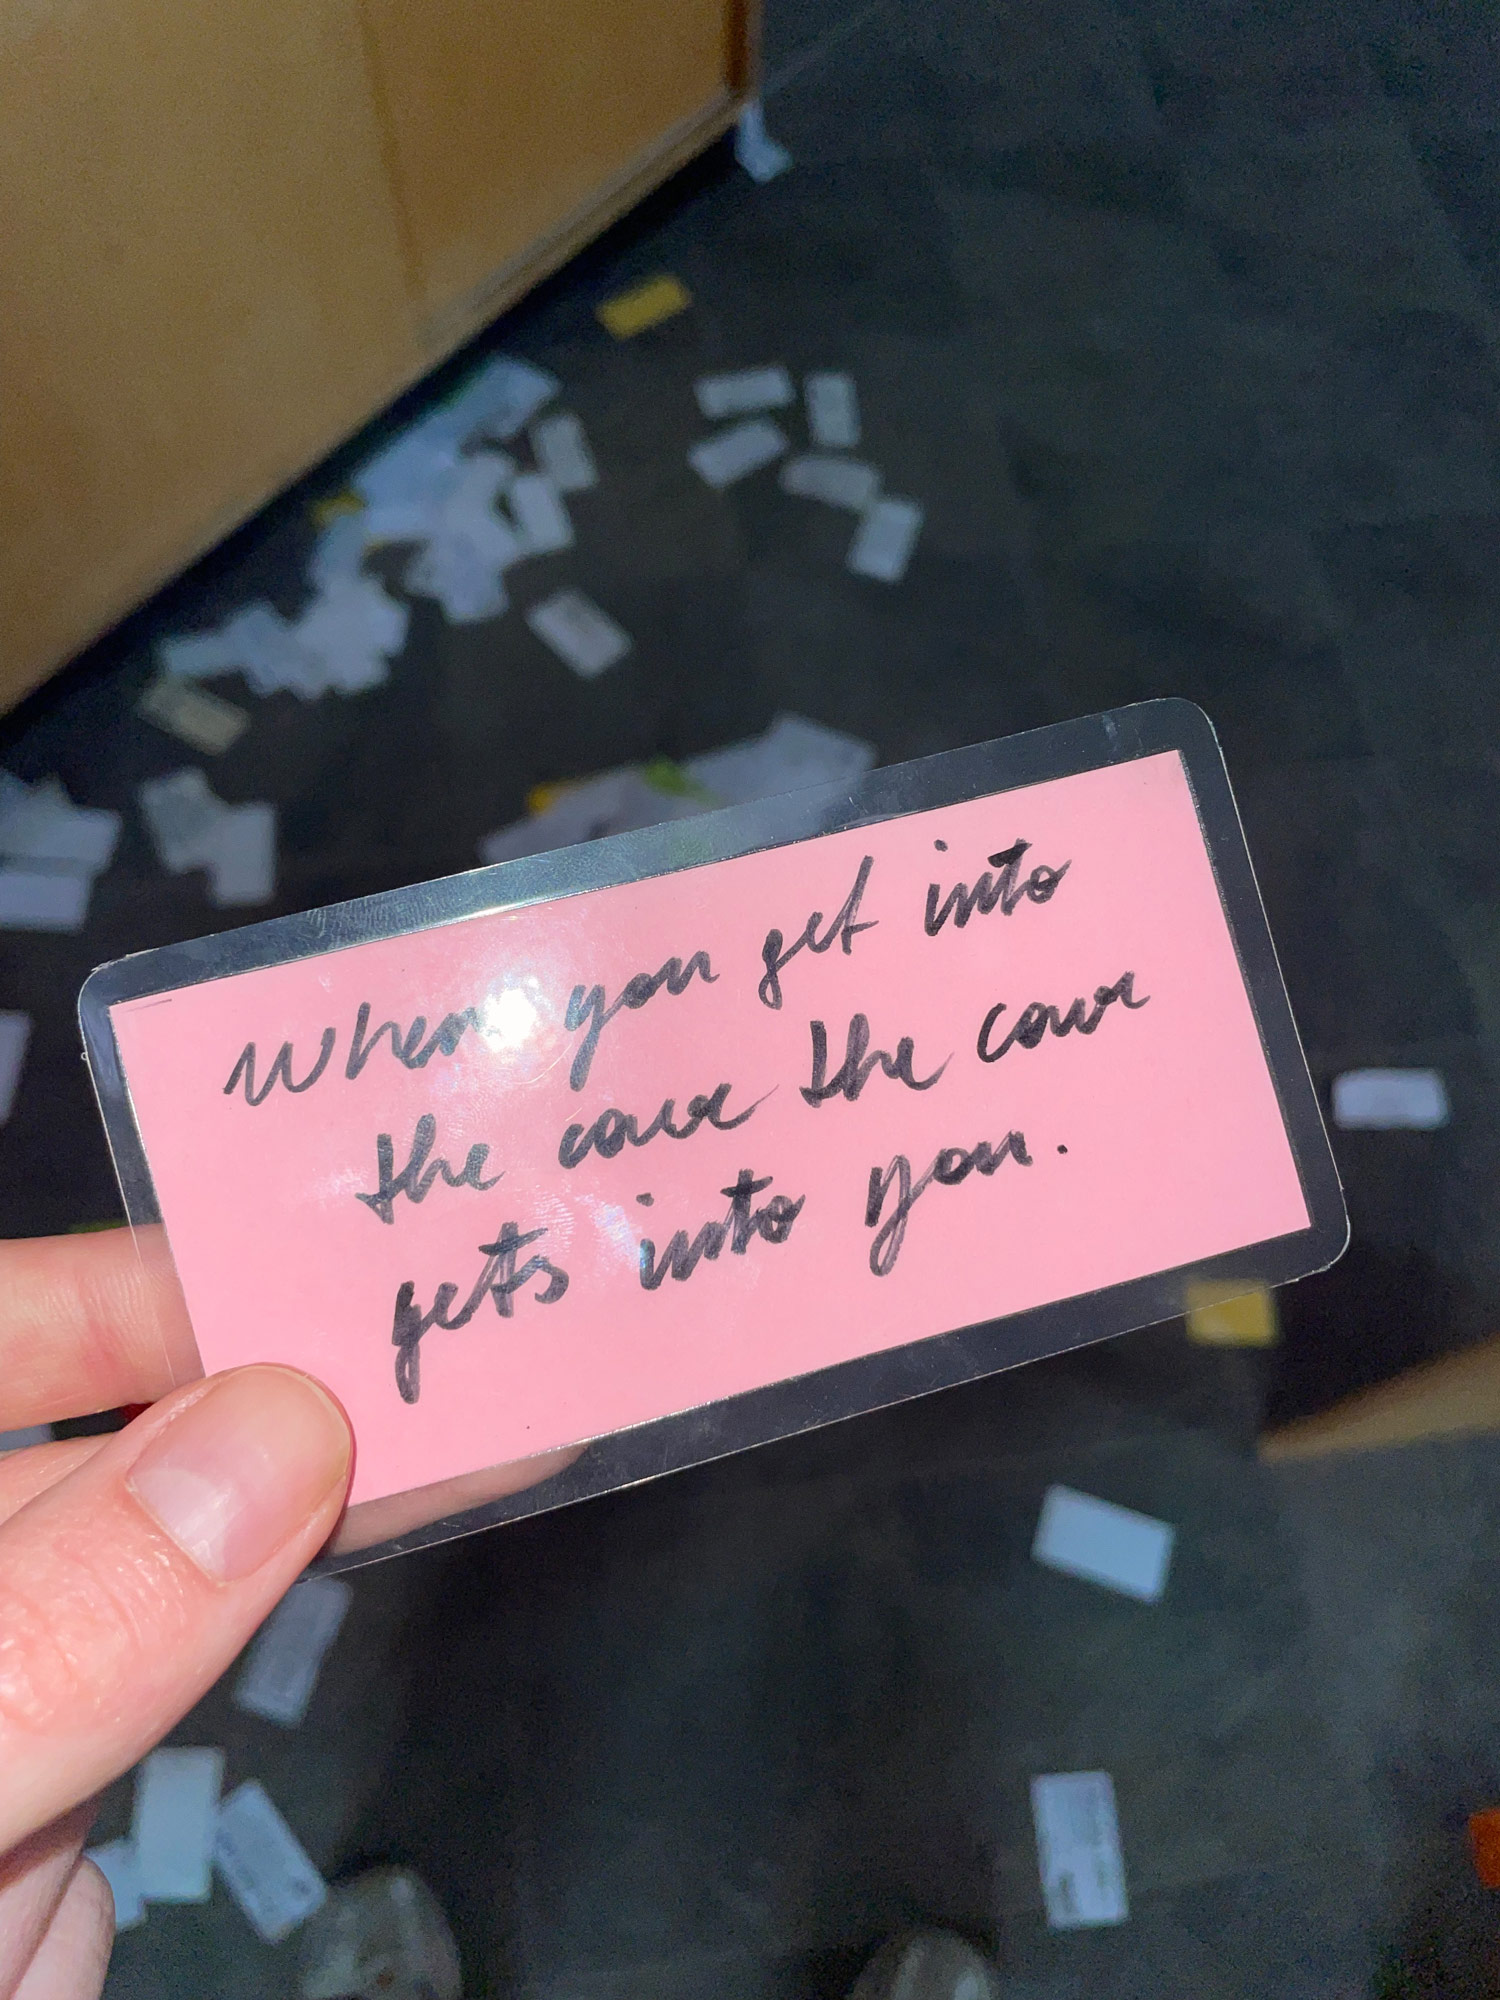 When you get into
the cave the cave
gets into you.